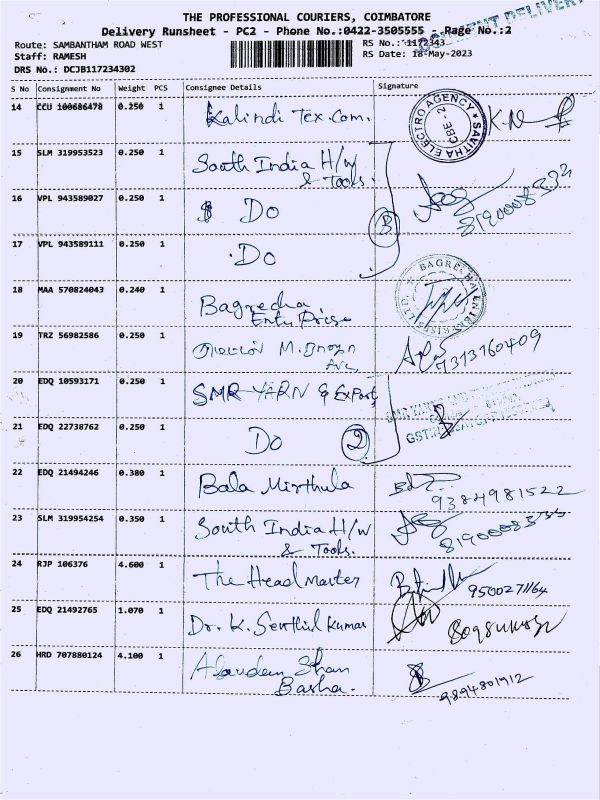 THE PROFESSIONAL COURIERS, COIMBATORE
Delivery Runsheet - PC2 - Phone No.:0422-3505555 - Page No.:2
Route: SAMBANTHAM ROAD WEST
RS No.: 1172343
Staff: RAMESH
RS Date: 18-May-2023
DRS No.: DCJB117234302
S No Consignment No Weight PCS Consignee Details Signature
14 CCU 100686478 0.250 1 Kalindi Tex.Com.
SAVITHA ELECTRO AGENCY CBE-2
15 SLM 319953523 0.250 1 South India H/w
& Tools.
16 VPL 943589027 0.250 1 Do
3
17 VPL 943589111 0.250 1 Do
18 MAA 570824043 0.240 1 Bagrecha
Enterprise
19 TRZ 56982586 0.250 1
7313160409
20 EDQ 10593171 0.250 1 SMR YARN & Export
21 EDQ 22738762 0.250 1 Do 2
22 EDQ 21494246 0.380 1 Bala Mirthula
9384981522
23 SLM 319954254 0.350 1 South India H/w
& Tools.
24 RJP 106376 4.600 1 The Head Master
9500271164
25 EDQ 21492765 1.070 1 Dr. K. Senthil Kumar
26 HRD 707880124 4.100 1
Basha.
9894801912